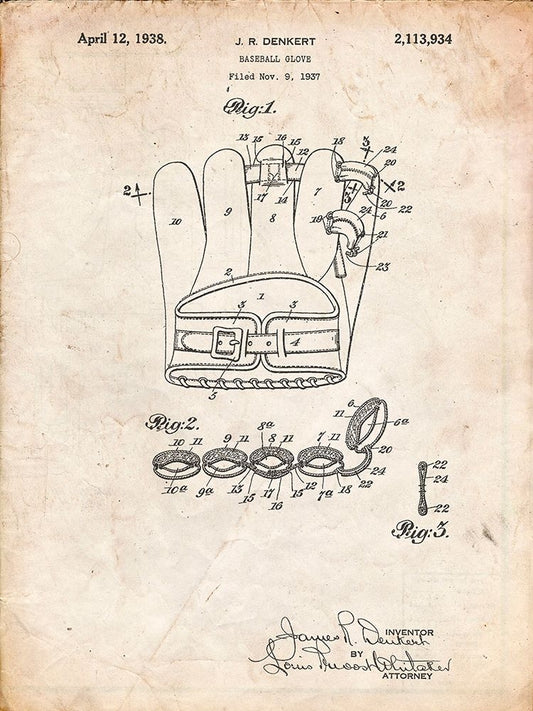 April 12, 1938.
J. R. DENKERT
2,113,934
BASEBALL GLOVE
Filed Nov. 9, 1937
Fig:1.
13 15 16 15 12 18 3 24 20
2 17 14 3 2
10 9 8 7 19 20 22 6 24 21 23
2 1 3 3 4 5
Fig:2.
10 11 9 11 8a 8 11 7 11 6 11 6a
10a 9a 13 15 17 16 15 12 7a 18 22 24 20
22 24 22
Fig:3.
James R. Denkert
INVENTOR
BY
Louis Prevost Whitaker
ATTORNEY